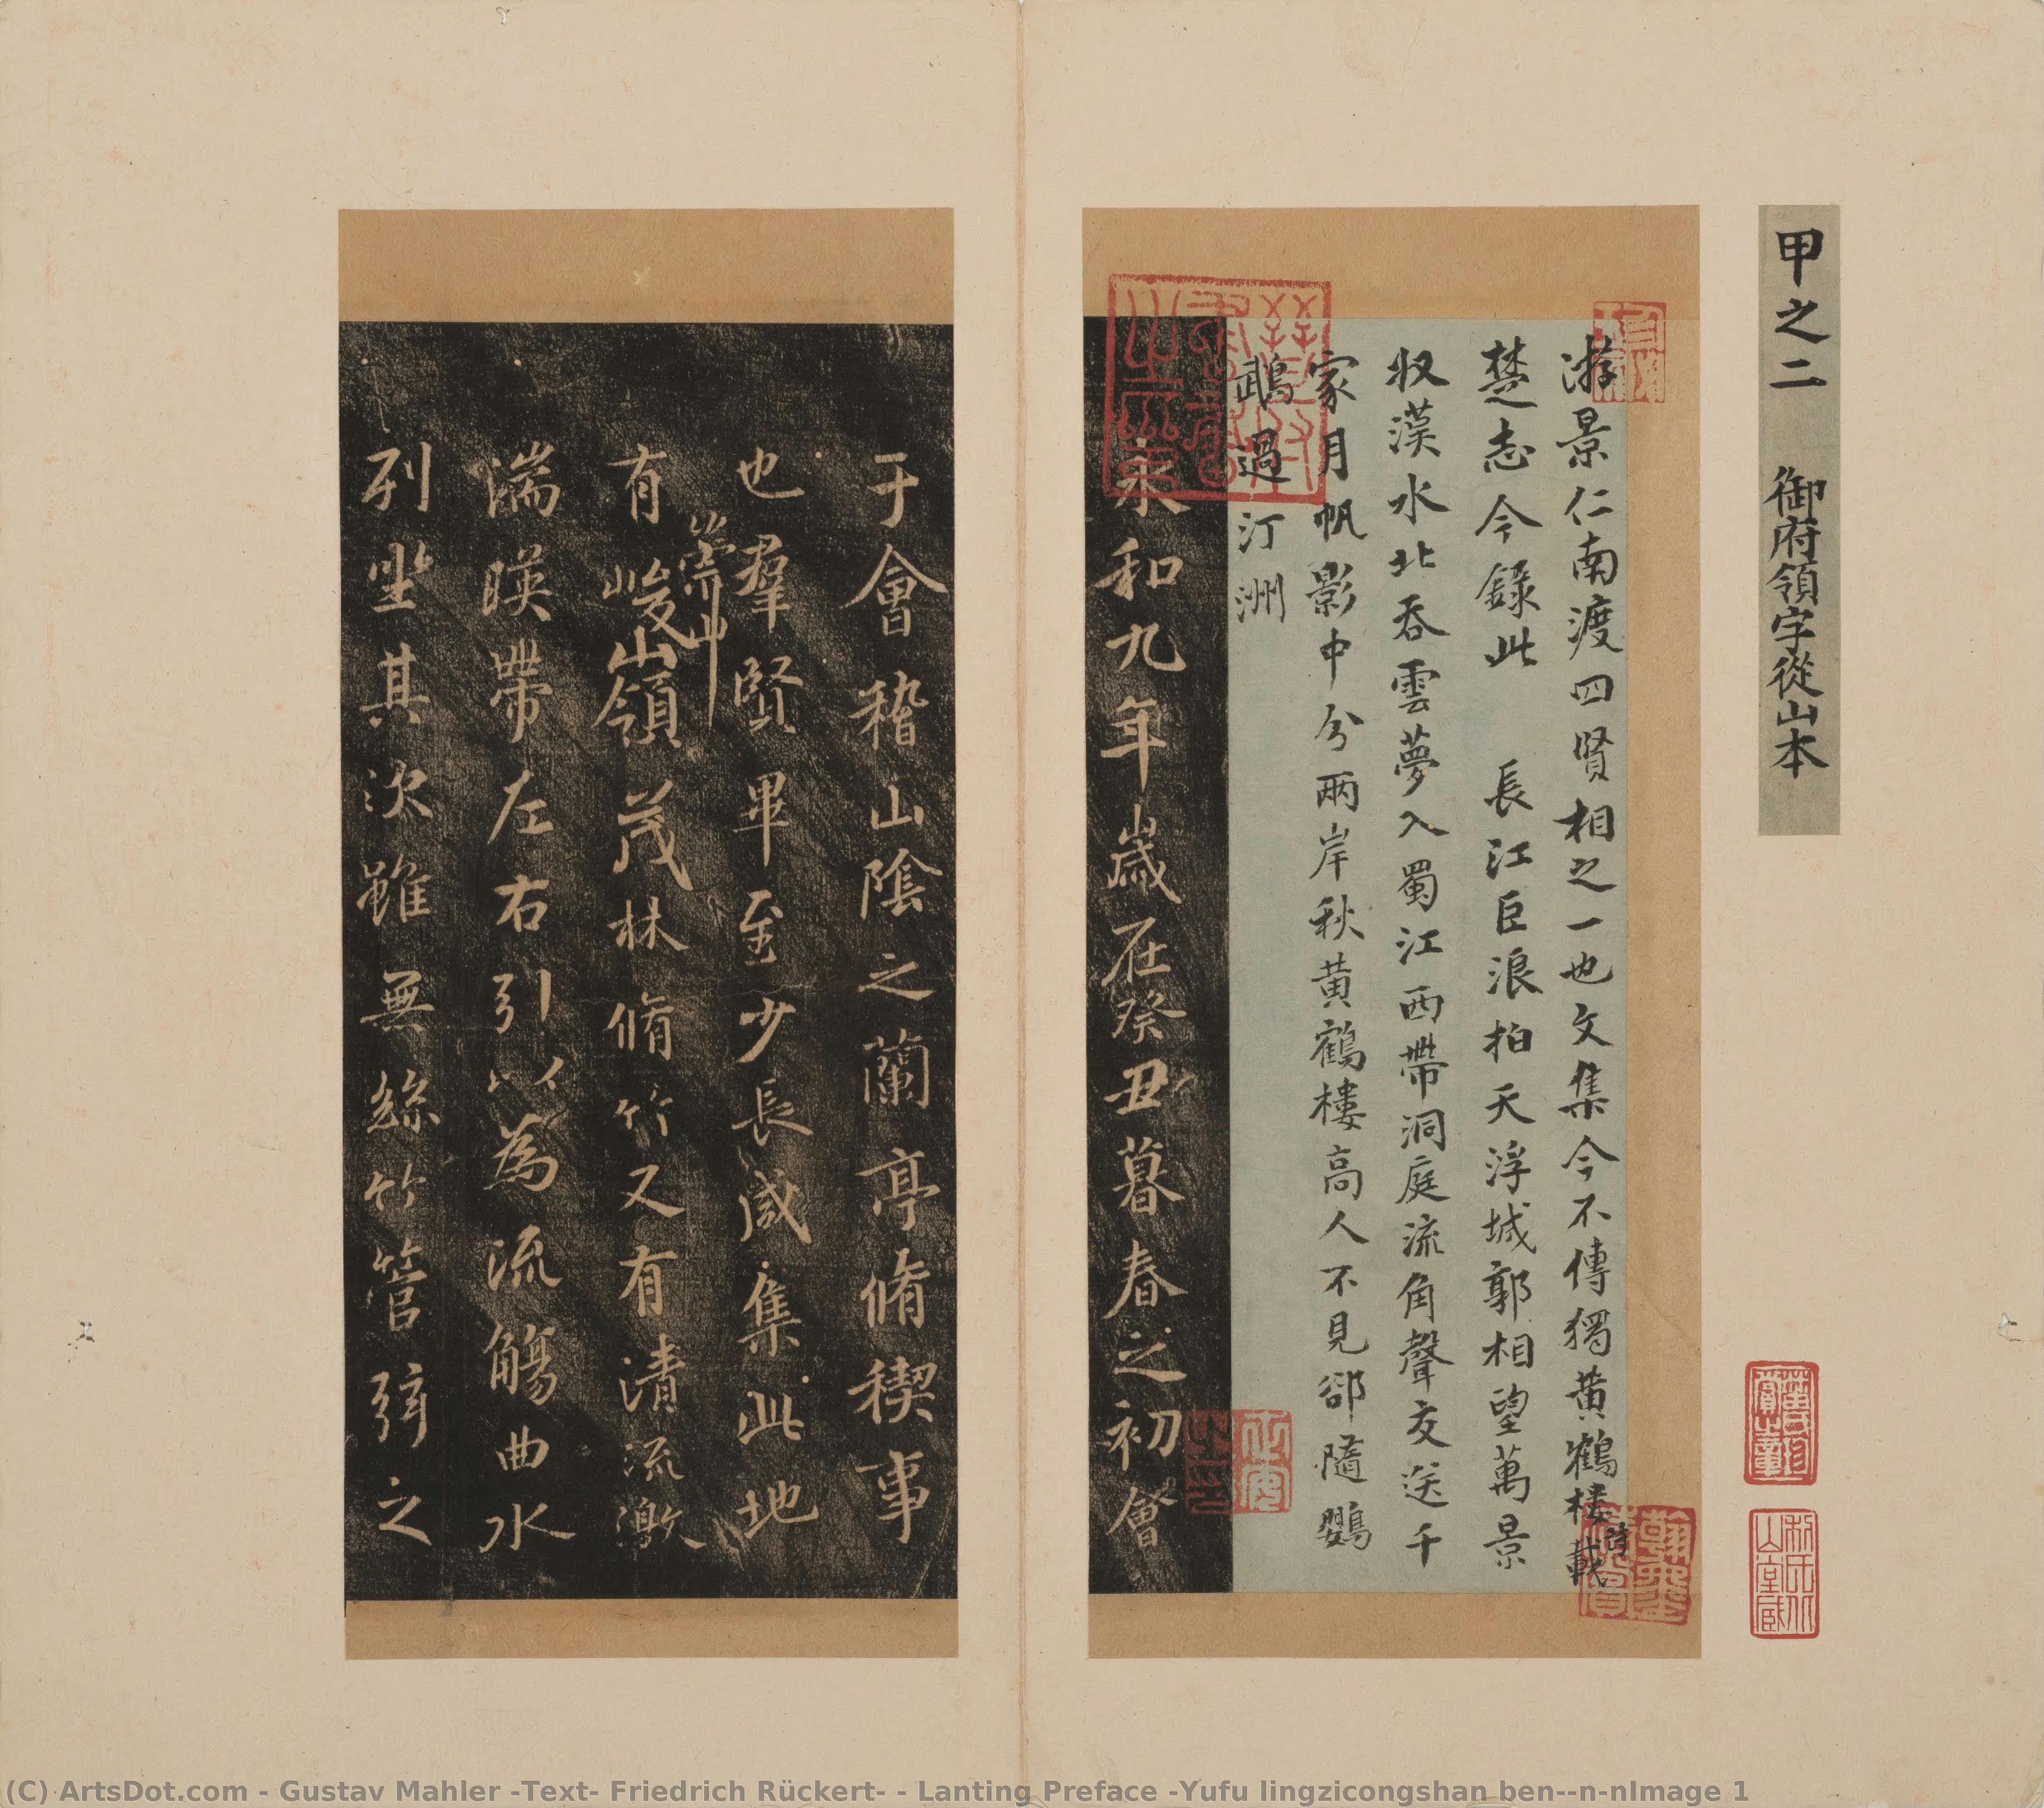 甲之二 御府領字從山本
游景仁南渡四賢相之一也文集今不傳獨黃鶴樓詩載
楚志今錄此 長江巨浪拍天浮城郭相望萬景
收漢水北吞雲夢入蜀江西帶洞庭流角聲交送千
家月帆影中分兩岸秋黃鶴樓高人不見卻隨鸚
鵡過汀洲
永和九年歲在癸丑暮春之初會
于會稽山陰之蘭亭脩稧事
也羣賢畢至少長咸集此地
崇山
有峻嶺茂林脩竹又有清流激
湍暎帶左右引以為流觴曲水
列坐其次雖無絲竹管弦之
(C) ArtsDot.com - Gustav Mahler -Text- Friedrich Rückert- - Lanting Preface -Yufu lingzicongshan ben--n-nImage 1